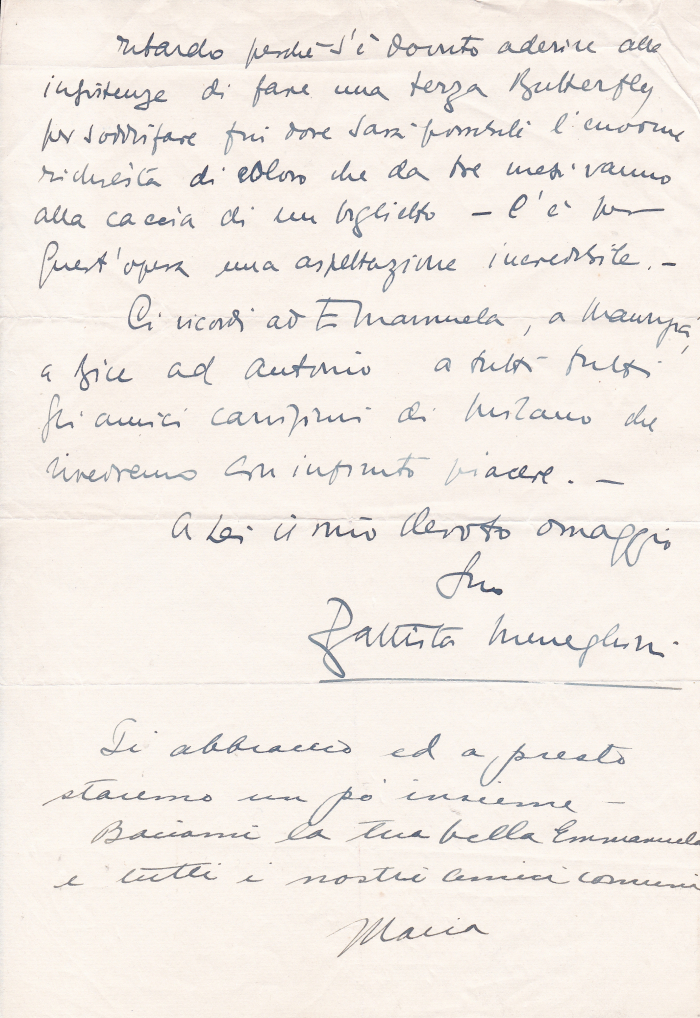 ritardo perché s'è dovuto aderire alle
insistenze di fare una terza Butterfly
per soddisfare fin dove sarà possibile l'enorme
richiesta di coloro che da tre mesi vanno
alla caccia di un biglietto – C'è per
quest'opera una aspettazione incredibile. –
Ci ricordi ad Emanuela, a
a Bice ad Antonio a tutti tutti
gli amici carissimi di Milano che
rivedremo con infinito piacere. –
A Lei il mio devoto omaggio
Suo
Battista Meneghini
Ti abbraccio ed a presto
staremo un pò insieme –
Baciami la tua bella Emmanuela
e tutti i nostri amici comuni
Maria